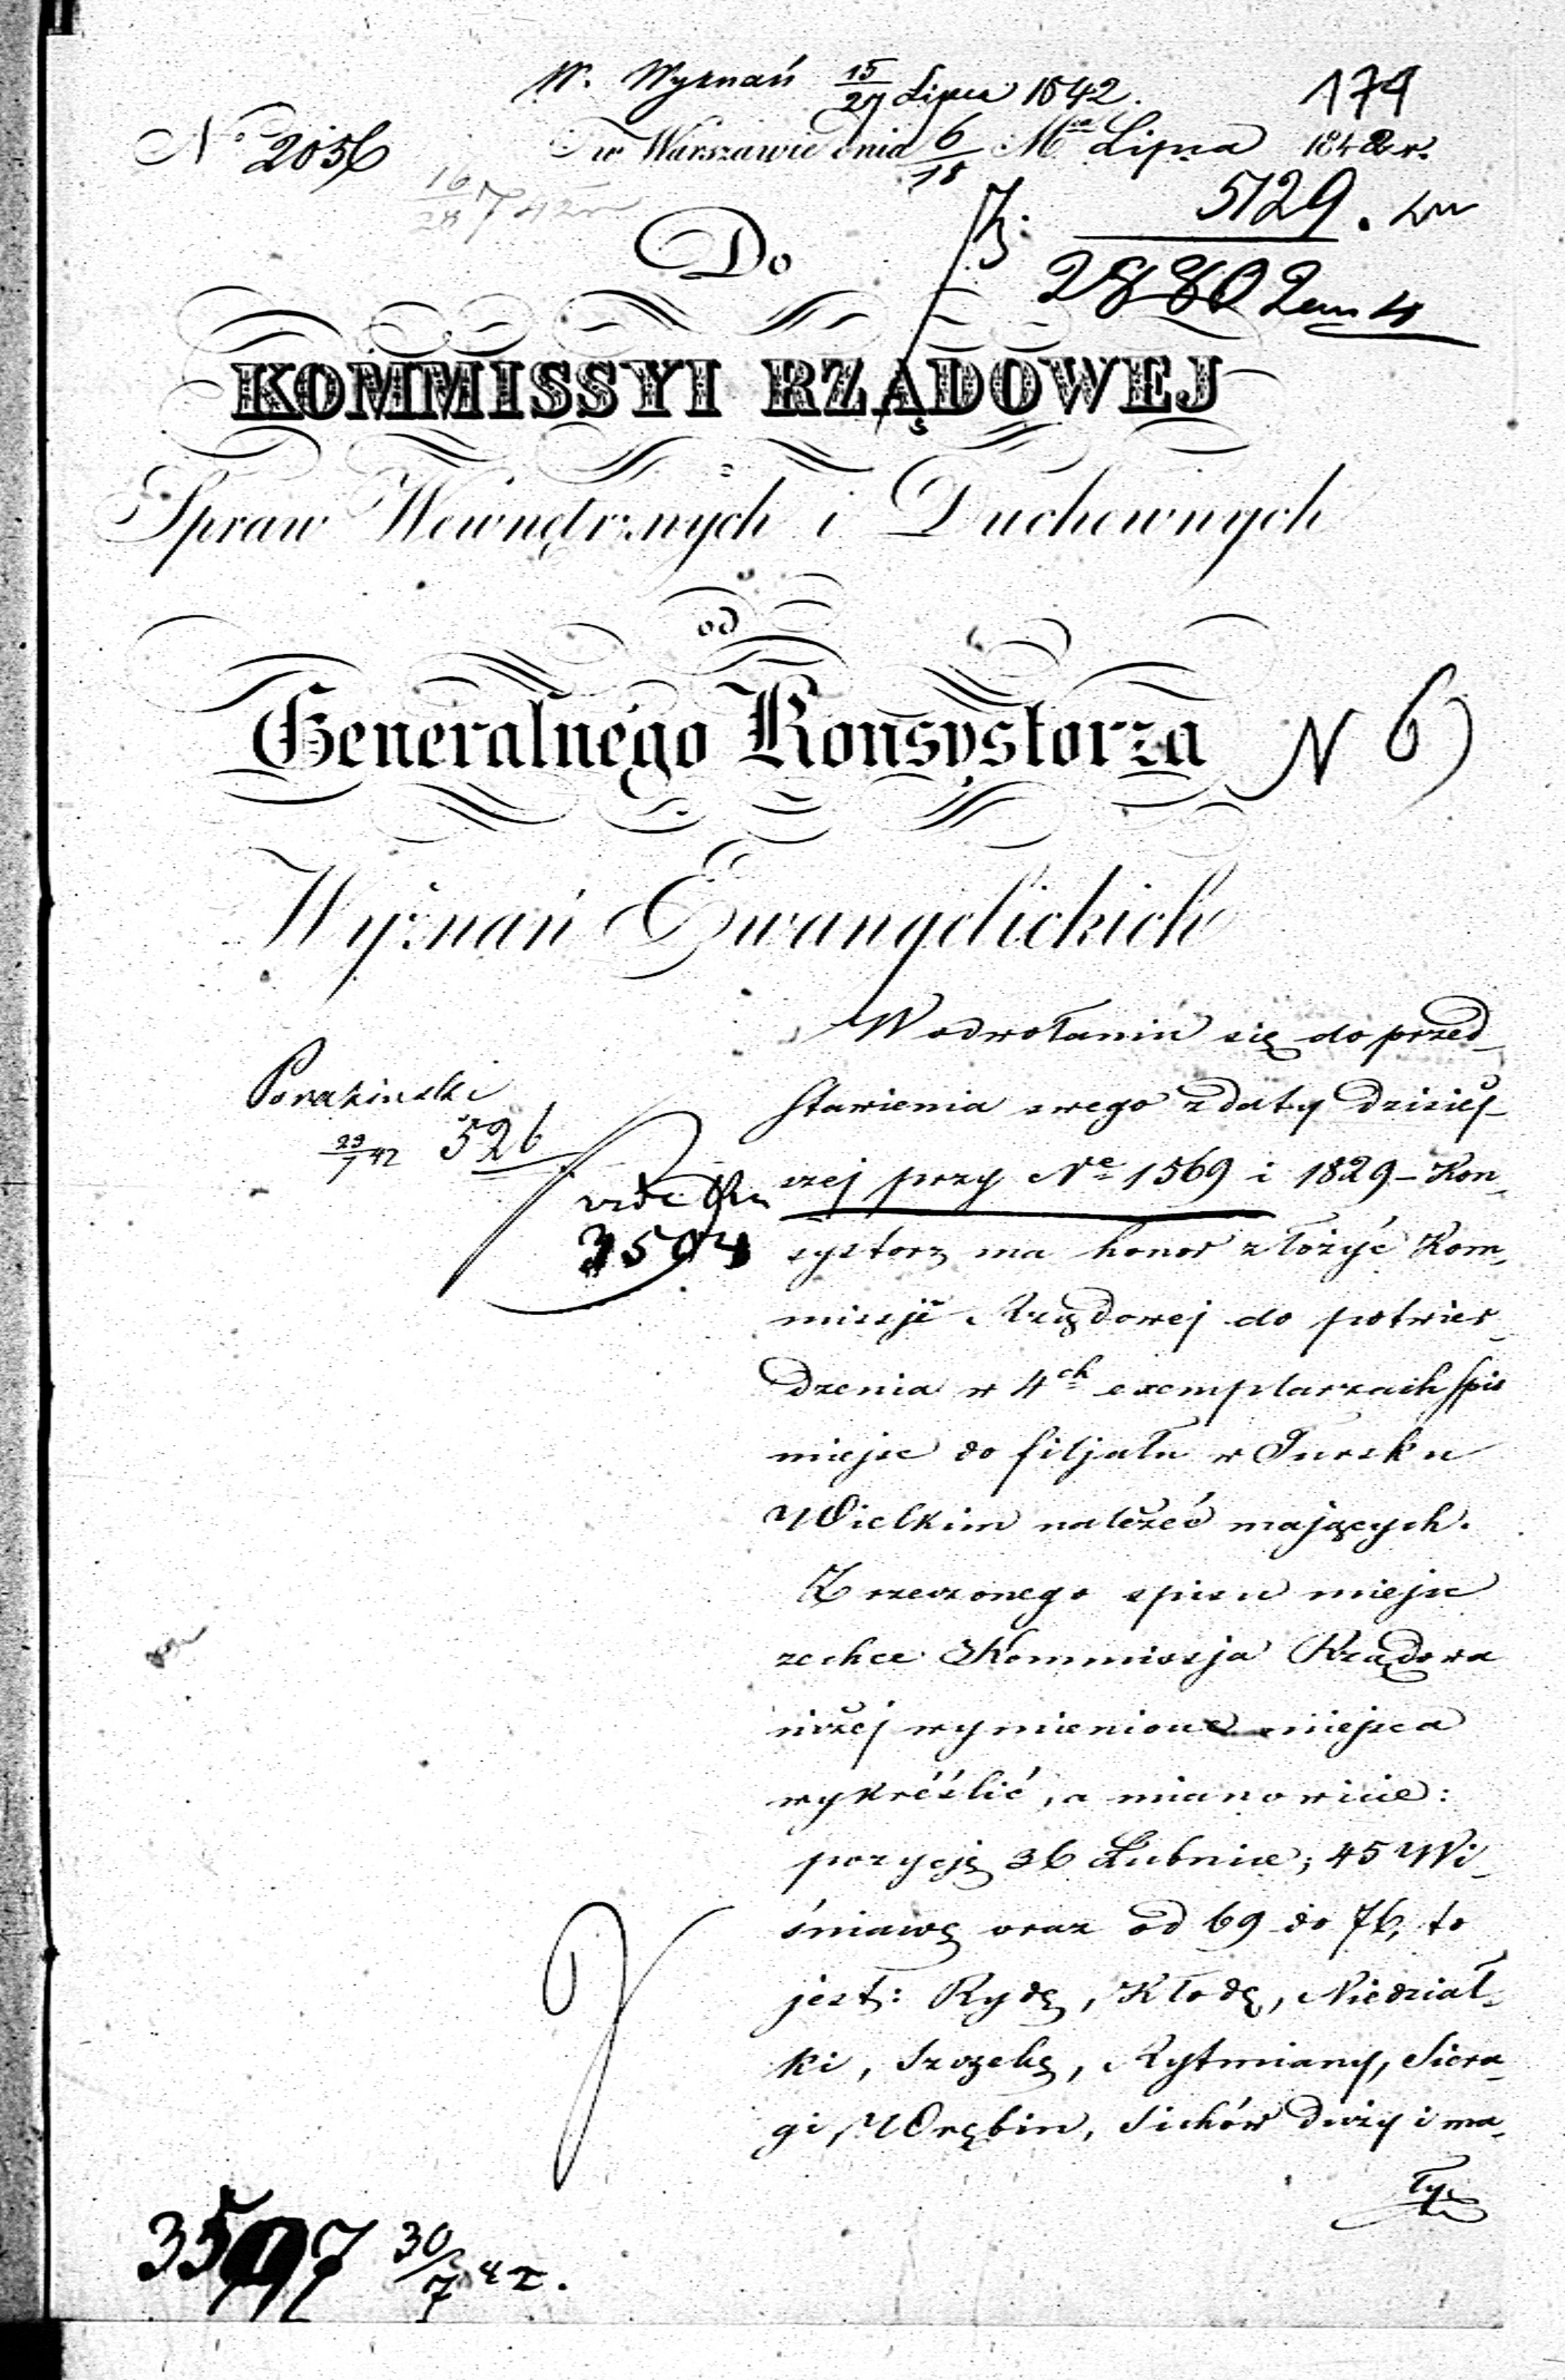 W. Wyznań 15/27 Lipca 1842.
174
No 2056
w Warszawie dnia 6/18 Mca Lipca 1842 r.
16/28 7 42
5129.
28802
Do
KOMMISSYI RZĄDOWEJ
Spraw Wewnętrznych i Duchownych
od
Generalnego Konsystorza
N 6
Wyznań Ewangelickich
W odwołaniu się do przed-
stawienia swego z daty dzisiej-
szej przy No 1569 i 1829 – Kon-
systorz ma honor złożyć Kom-
missji Rządowej do potwier-
dzenia w 4ch exemplarzach spis
miejsc do filjału w Tursku
Wielkim należeć mających.
Z rzeczonego spisu miejsc
zechce Kommissja Rządowa
niżej wymienione miejsca
wykréślić, a mianowicie:
pozycję 36 Łubnice; 45 Wi-
śniawę oraz od 69 do 76, to
jest: Rydę, Kłodę, Niedział-
ki, Szczekę, Rytwiany, Siera-
gi, Wrębin, Sichów duży i ma-
ły
29/7 42 526
vide
3594
3597 30/7 42.